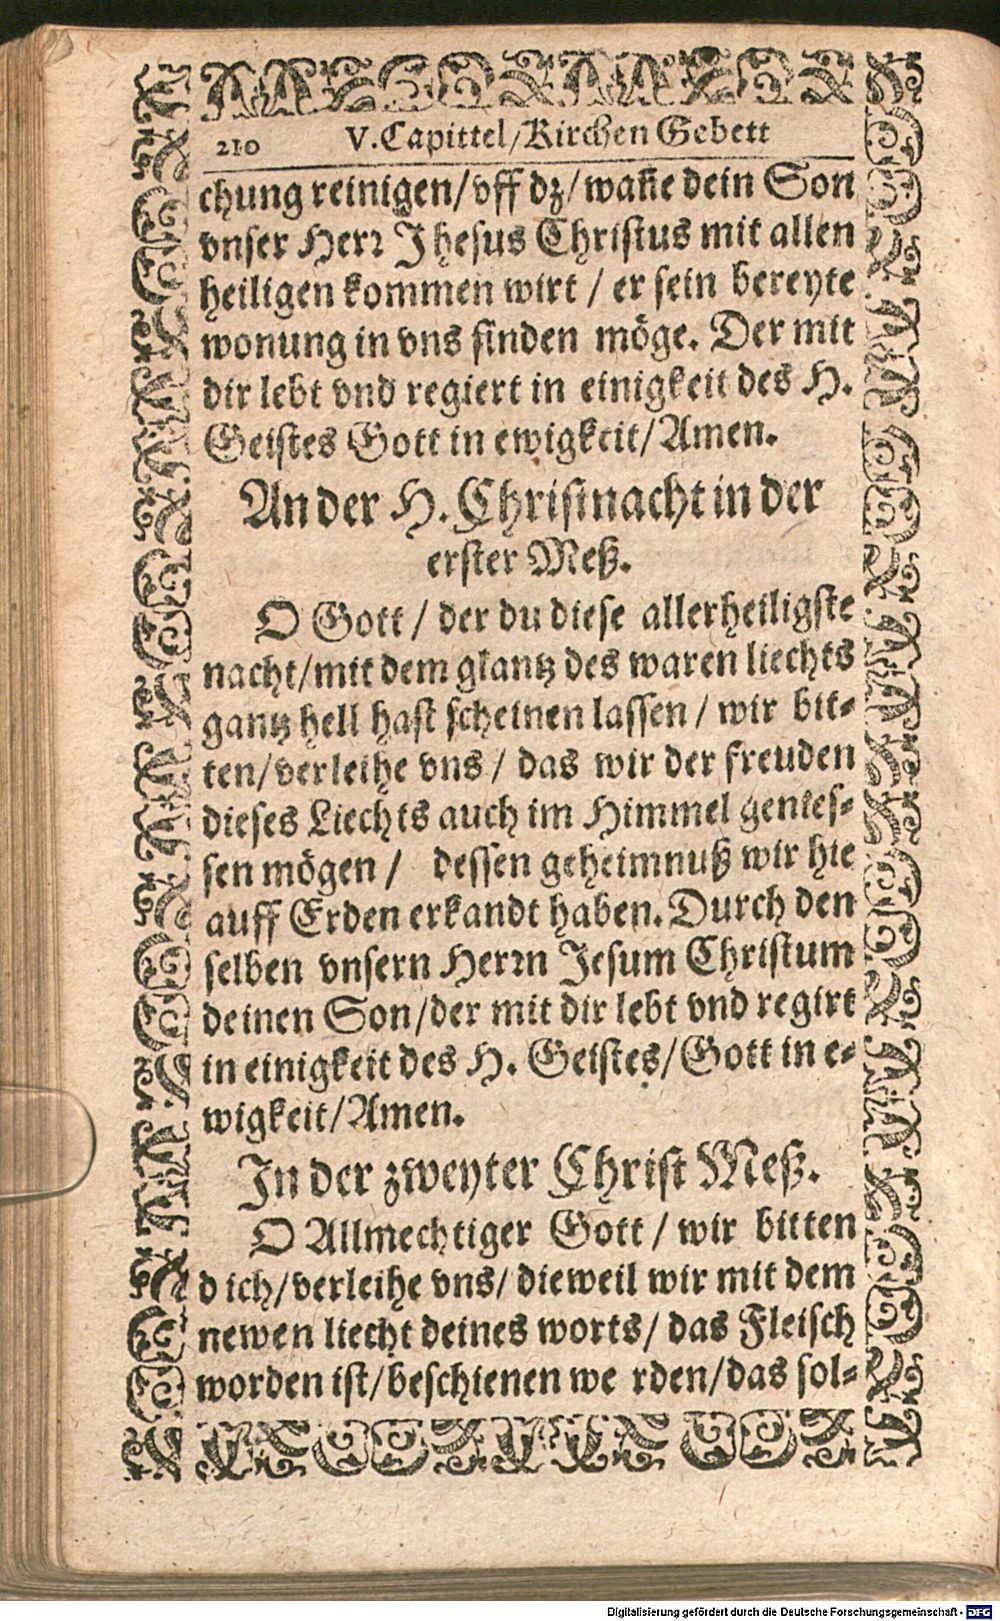 210 V. Capittel/Kirchen Gebett
chung reinigen/vff dz/wañe dein Son
vnser Herr Jhesus Christus mit allen
heiligen kommen wirt / er sein bereyte
wonung in vns finden möge. Der mit
dir lebt vnd regiert in einigkeit des H.
Geistes Gott in ewigkeit/Amen.
An der H. Christnacht in der
erster Meß.
O Gott / der du diese allerheiligste
nacht/mit dem glantz des waren liechts
gantz hell hast scheinen lassen / wir bit-
ten/verleihe vns / das wir der freuden
dieses Liechts auch im Himmel genies-
sen mögen / dessen geheimnuß wir hie
auff Erden erkandt haben. Durch den
selben vnsern Herrn Jesum Christum
deinen Son/der mit dir lebt vnd regirt
in einigkeit des H. Geistes/Gott in e-
wigkeit/Amen.
In der zweyter Christ Meß.
O Allmechtiger Gott / wir bitten
d ich/verleihe vns/ dieweil wir mit dem
newen liecht deines worts/ das Fleisch
worden ist/beschienen we rden/das sol-
Digitalisierung gefördert durch die Deutsche Forschungsgemeinschaft - DFG